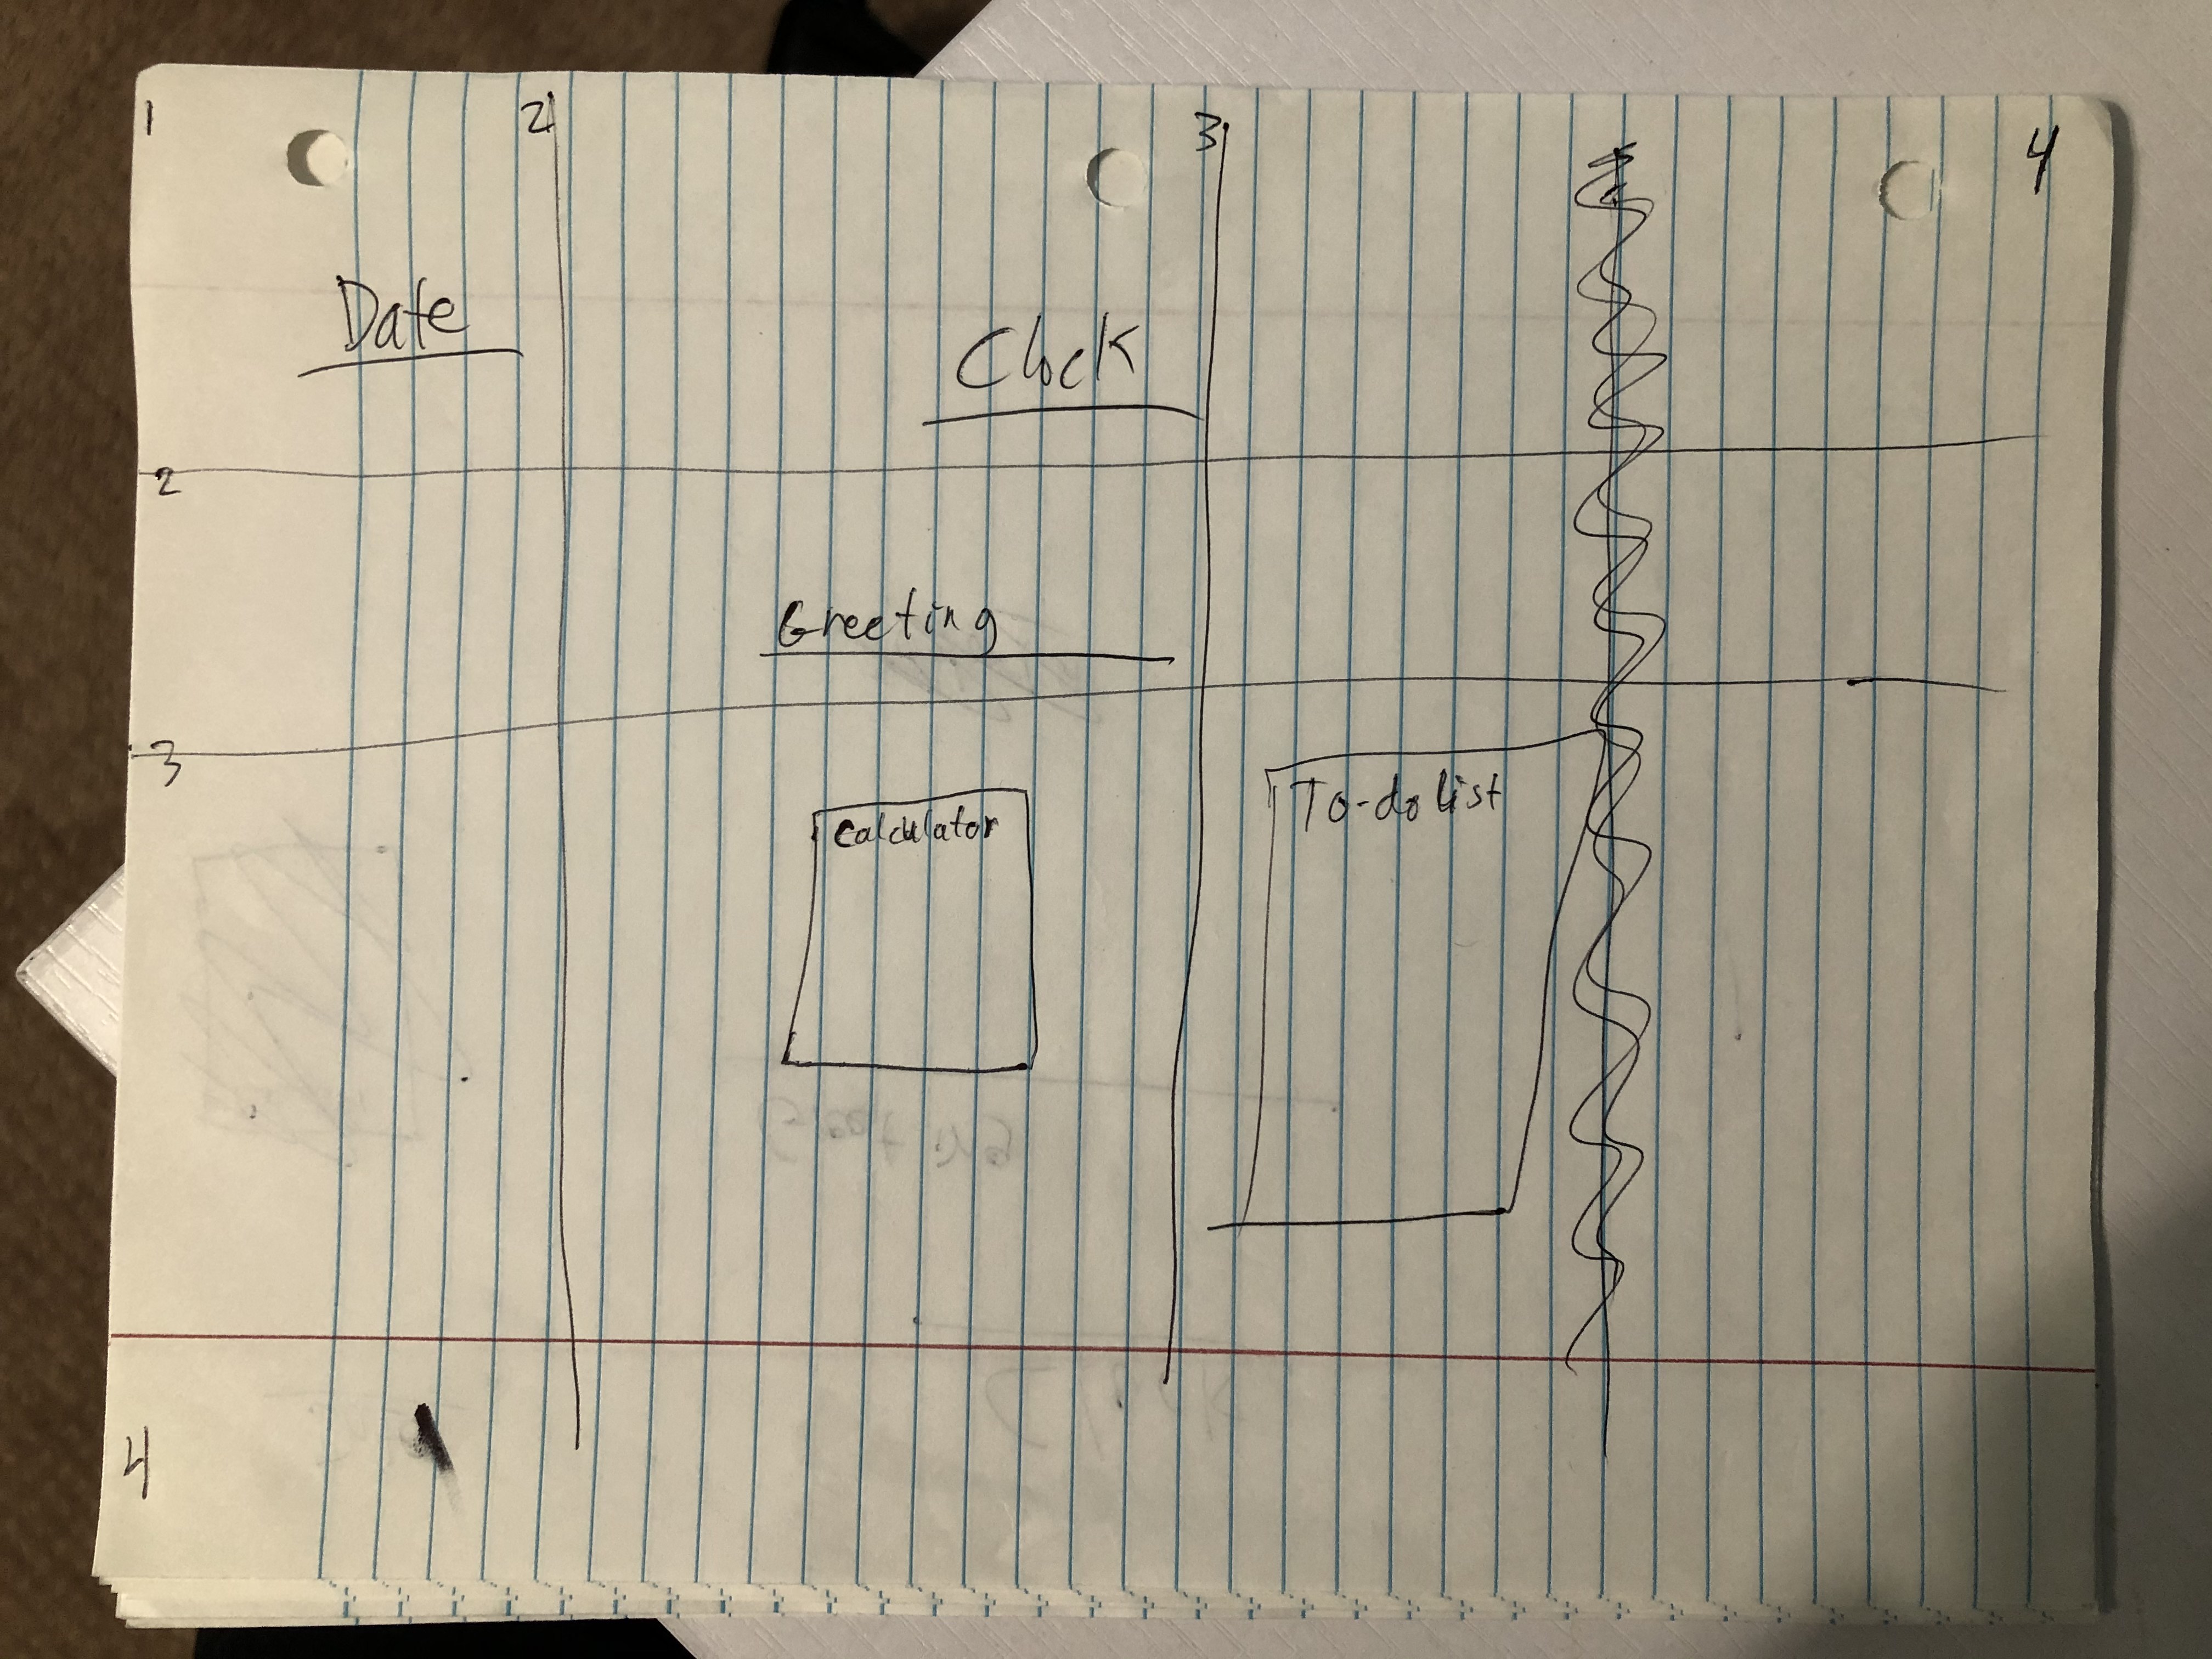 1 2 3 4
Date
Clock
2
Greeting
3
Calculator
To-do list
4